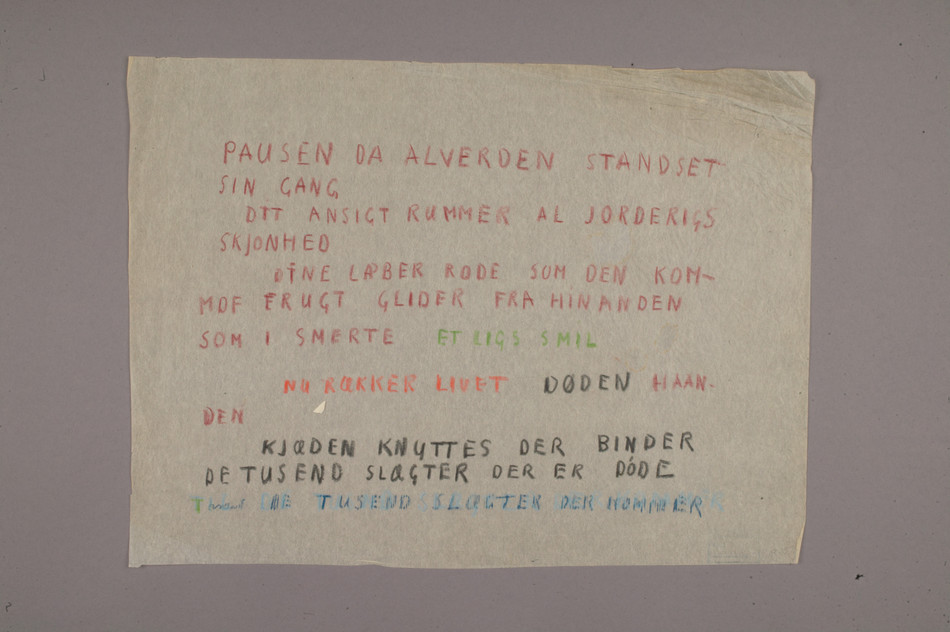 PAUSEN DA ALVERDEN STANDSET
SIN GANG
DIT ANSIGT RUMMER AL JORDERIGS
SKJONHED
DINE LÆBER RØDE SOM DEN KOM-
MDE FRUGT GLIDER FRA HINANDEN
SOM I SMERTE ET LIGS SMIL
NU RÆKKER LIVET DØDEN HAAN-
DEN
KJÆDEN KNYTTES DER BINDER
DE TUSEND SLÆGTER DER ER DÓDE
DE TUSEND SLÆGTER DER KOMMER